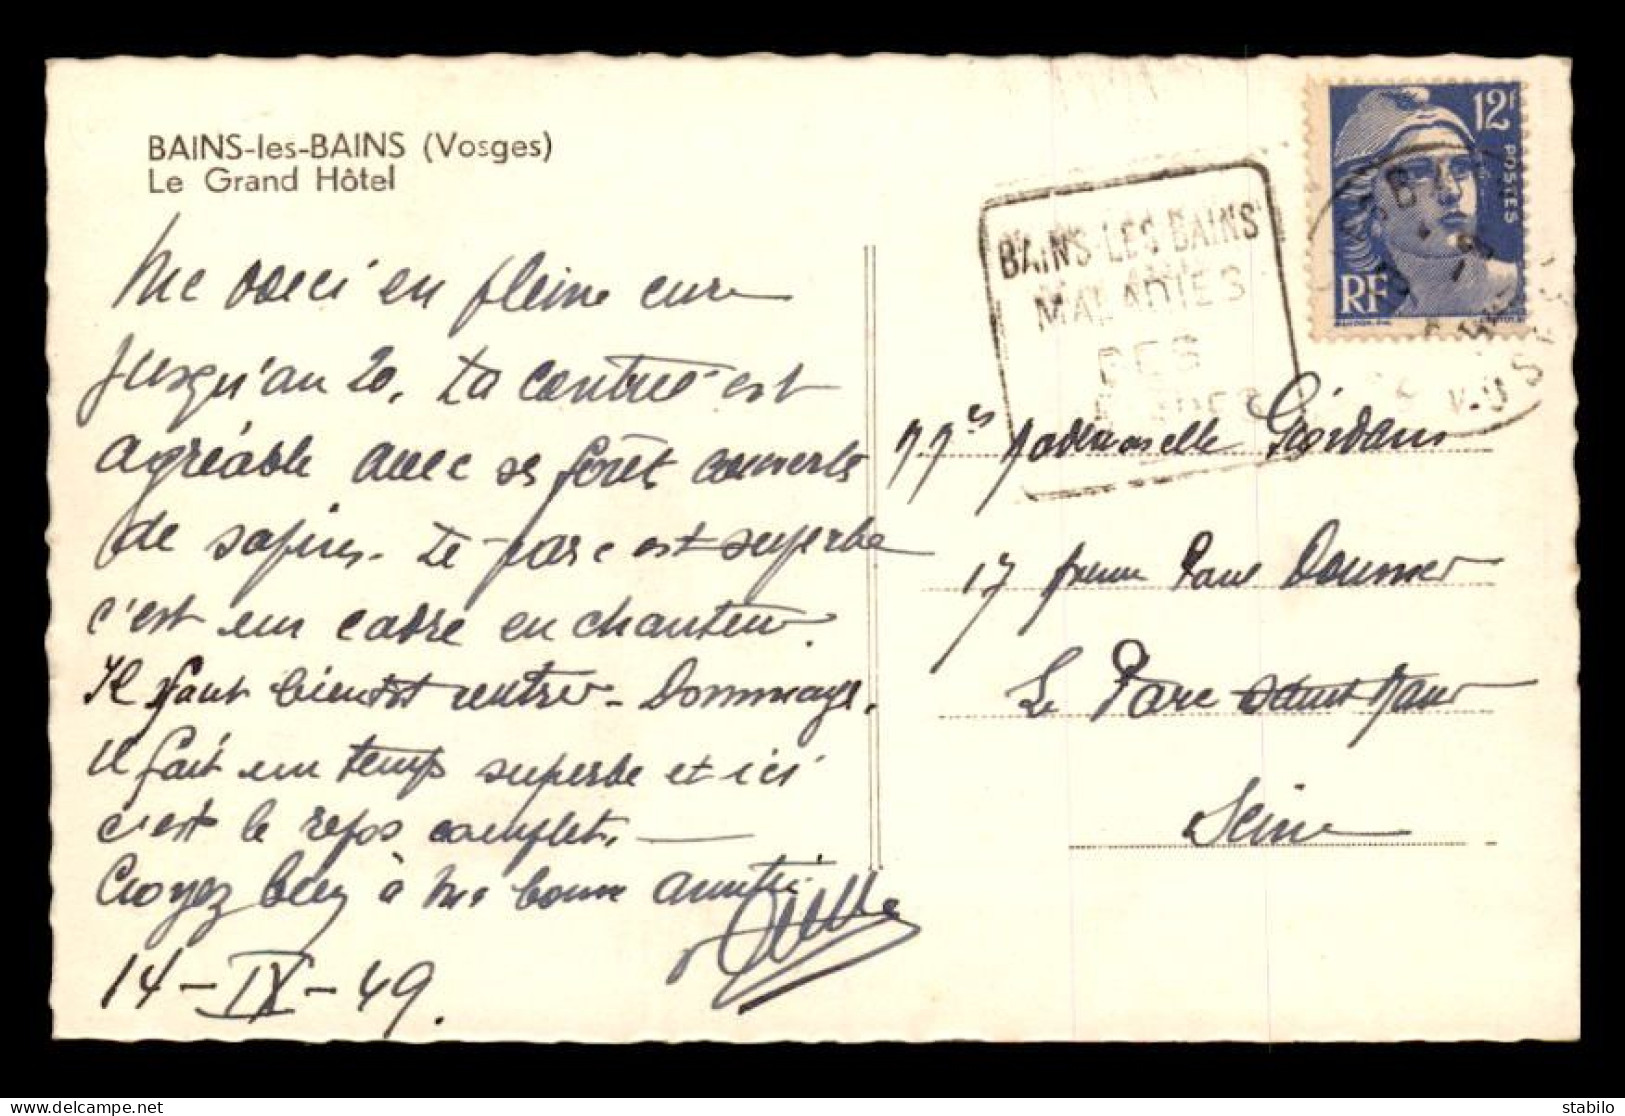 BAINS-les-BAINS (Vosges)
Le Grand Hôtel
Me voici en pleine cure
jusqu'au 20. La contrée est
agréable avec ses forêts couverte
de sapins. Le parc est superbe
c'est un cadre enchanteur.
Il faut bientôt rentrer - Dommage.
il fait un temps superbe et ici
c'est le repos complet.
Croyez bien à ma bonne amitié
14-IX-49.
BAINS-LES-BAINS
MALADIES
DES
12F
POSTES
RF
Mademoiselle
17 Avenue Paul Doumer
Le Parc Saint Maur
Seine
stabilo